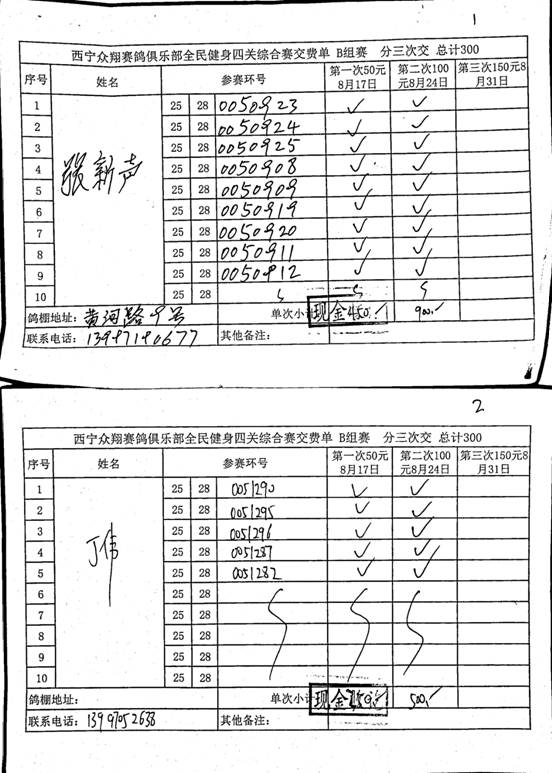 1
西宁众翔赛鸽俱乐部全民健身四关综合赛交费单 B组赛 分三次交 总计300
序号 姓名 参赛环号 第一次50元8月17日 第二次100元8月24日 第三次150元8月31日
张新声
1 25 28 0050923 ✓ ✓
2 25 28 0050924 ✓ ✓
3 25 28 0050925 ✓ ✓
4 25 28 0050908 ✓ ✓
5 25 28 0050909 ✓ ✓
6 25 28 0050919 ✓ ✓
7 25 28 0050920 ✓ ✓
8 25 28 0050911 ✓ ✓
9 25 28 0050912 ✓ ✓
10 25 28
鸽棚地址: 黄河路9号 单次小计 现金 450 900
联系电话: 13997190677 其他备注:
2
西宁众翔赛鸽俱乐部全民健身四关综合赛交费单 B组赛 分三次交 总计300
序号 姓名 参赛环号 第一次50元8月17日 第二次100元8月24日 第三次150元8月31日
丁伟
1 25 28 0051290 ✓ ✓
2 25 28 0051295 ✓ ✓
3 25 28 0051296 ✓ ✓
4 25 28 0051287 ✓ ✓
5 25 28 0051282 ✓ ✓
6 25 28
7 25 28
8 25 28
9 25 28
10 25 28
鸽棚地址: 单次小计 现金 500
联系电话: 13997052638 其他备注: